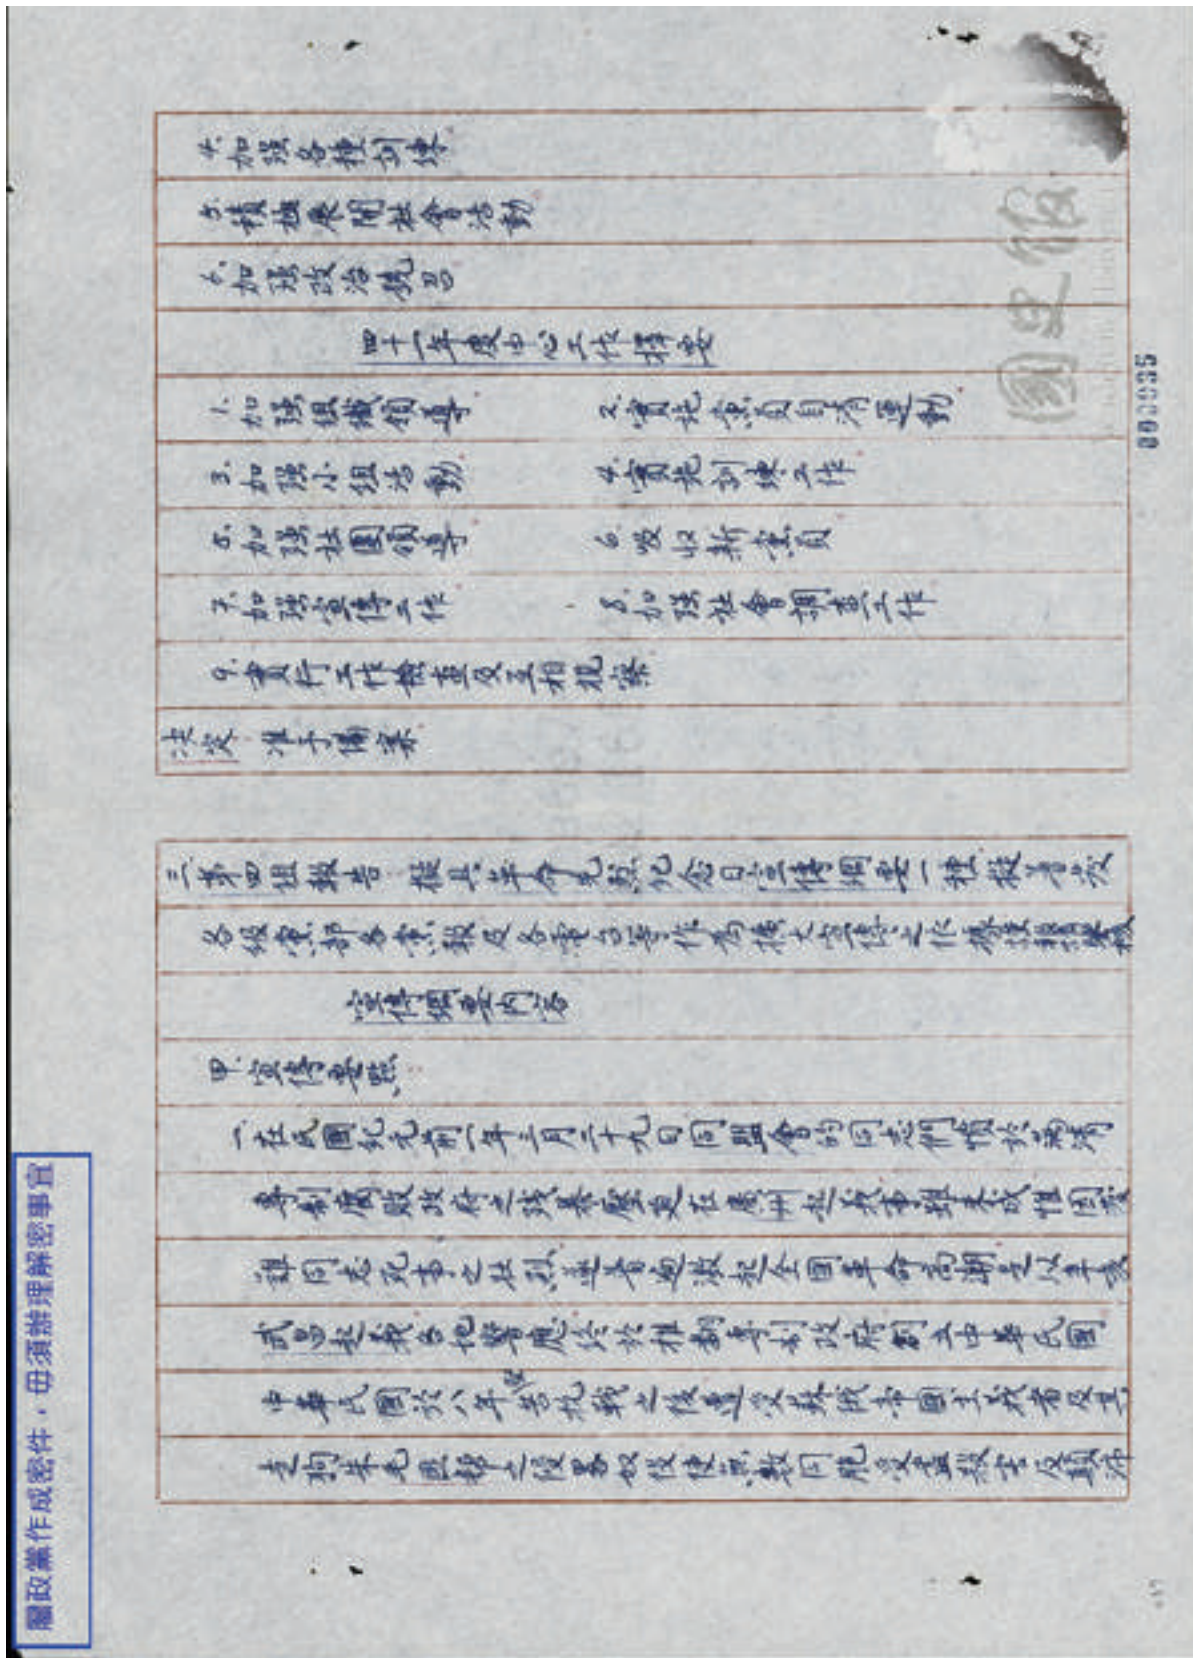 4.加強各種訓練
5.積極展開社會活動
6.加強政治號召
四十一年度中心工作擇要
1.加強組織領導 2.實施黨員自清運動
3.加強小組活動 4.實施訓練工作
5.加強社團領導 6.吸收新黨員
7.加強宣傳工作 8.加強社會調查工作
9.實行工作檢查及互相視察
決定 准予備案
三、第四組報告 擬具革命先烈紀念日宣傳綱要一種擬著發
各級黨部各黨報及各電台等作為擴大宣傳之依據
宣傳綱要內容
甲、宣傳要點
一、在民國紀元前一年三月二十九日同盟會的同志們憤於滿清
專制腐敗政府之殘暴壓迫在廣州起義事雖未成惟因
諸同志死事之壯烈遂普遍激起全國革命高潮是以辛亥
武昌起義各地響應終於推翻專制政府創立中華民國
中華民國於八年艱苦抗戰之後遭受蘇俄帝國主義者及其
走狗朱毛匪幫之侵略奴役使無數同胞
國史館
000035
屬政黨作成密件，毋須辦理解密事宜